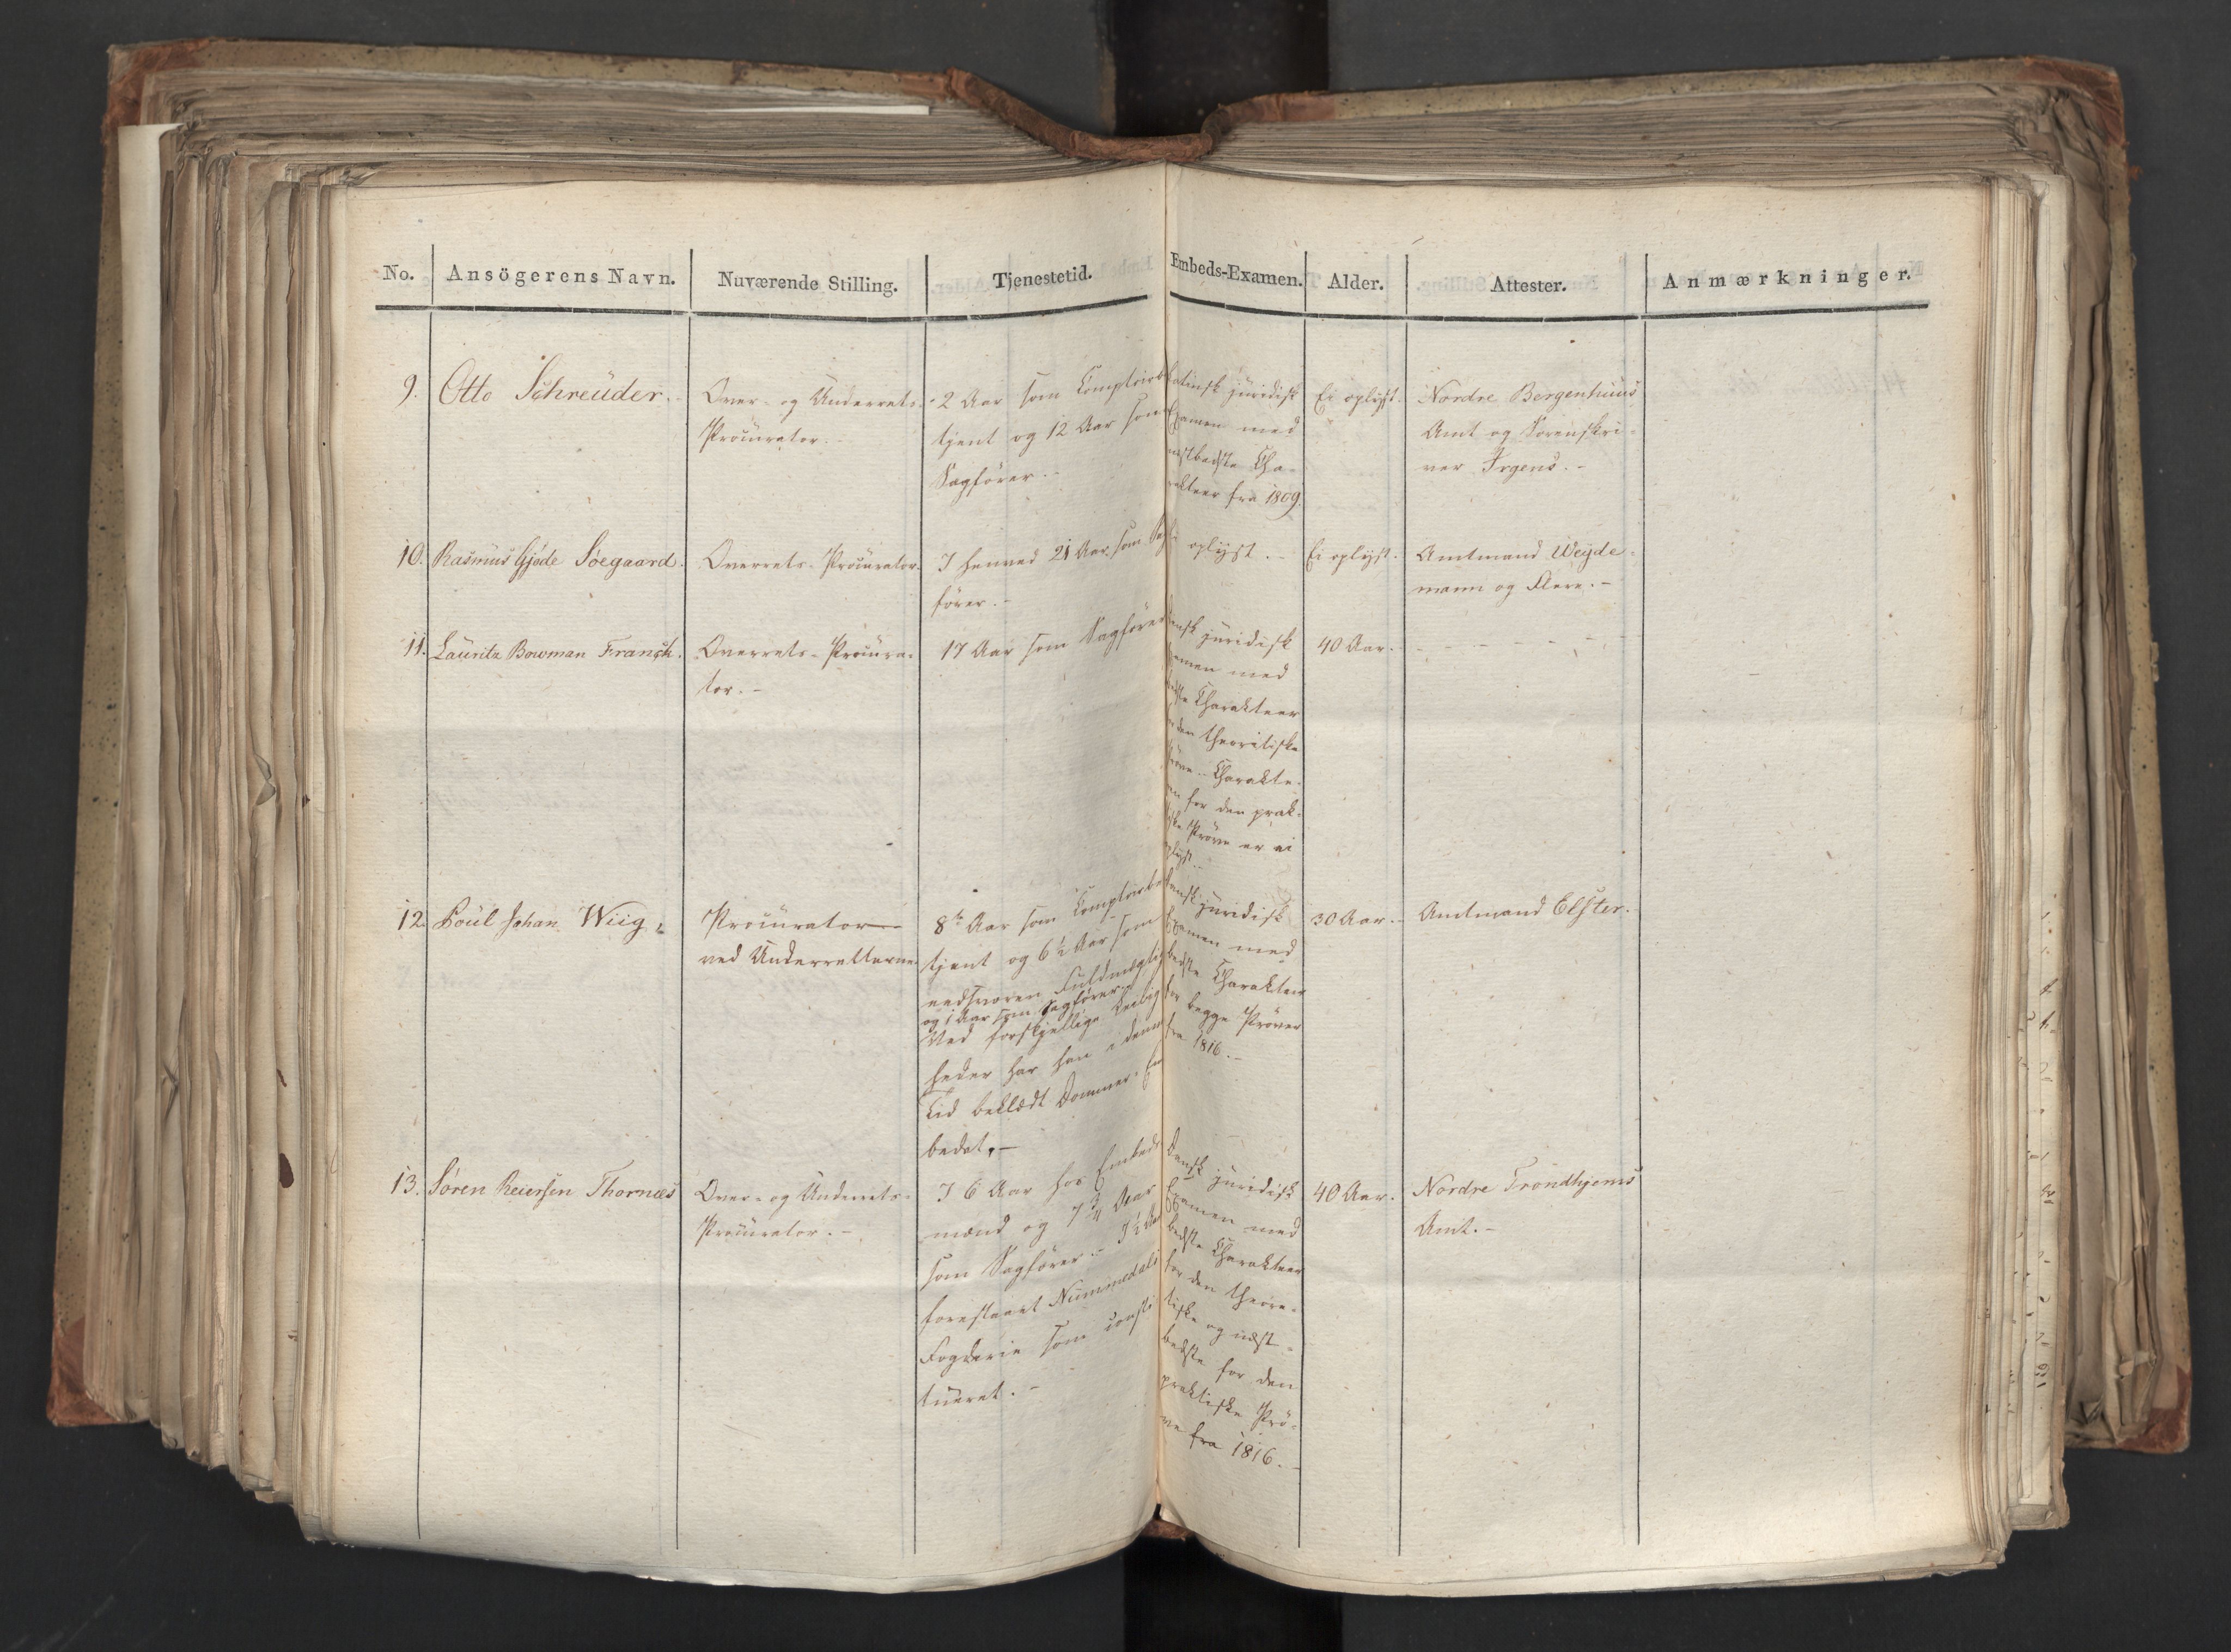 No. Ansögerens Navn. Nuværende Stilling. Tjenestetid. Embeds-Examen. Alder. Attester. Anmærkninger.
9. Otto Schreuder.
Over- og Underrets-
Procurator.
2 Aar som Comptoirbe
tjent og 12 Aar som
Sagförer.
Latinsk juridisk
Examen med
næstbedste Cha-
rakteer fra 1809.
Ei oplyst.
Nordre Bergenhuus
Amt og Sorenskri-
ver Irgens.
10. Rasmus Gjøde Söegaard.
Overrets-Procurator.
I henved 21 Aar som Sag
förer.
Ei oplyst.
Ei oplyst.
Amtmand Weyde-
mann og Flere.
11. Lauritz Bowman Franck.
Overrets-Procura-
tor.
17 Aar som Sagförer
Dansk juridisk
Examen med
bedste Charakteer
for den theoretiske
Pröve. Charakte-
ren for den prak-
tiske Pröve er ei
oplyst.
40 Aar.
- - - - - -
12. Poul Johan Wiig,
Procurator
ved Underretterne
8te Aar som Comptoirbe
tjent og 6½ Aar som
eedsvoren Fuldmægtig
og 1 Aar som Sagförer.
Ved forskjellige Leilig
heder har han i denne
Tid beklædt Dommer-Em
bedet.
Dansk juridisk
Examen med
bedste Charakteer
for begge Pröver
fra 1816.
30 Aar.
Amtmand Elster.
13. Sören Reiersen Thornæs
Over- og Underrets-
Procurator.
I 6 Aar hos Embeds
mænd og 7¾ Aar
som Sagförer. I ½ Aar
forestaaet Nummedals
Fogderie som consti
tueret.
Dansk juridisk
Examen med
bedste Charakteer
for den theore-
tiske og næst-
bedste for den
praktiske Prö-
ve fra 1816.
40 Aar.
Nordre Trondhjems
Amt.